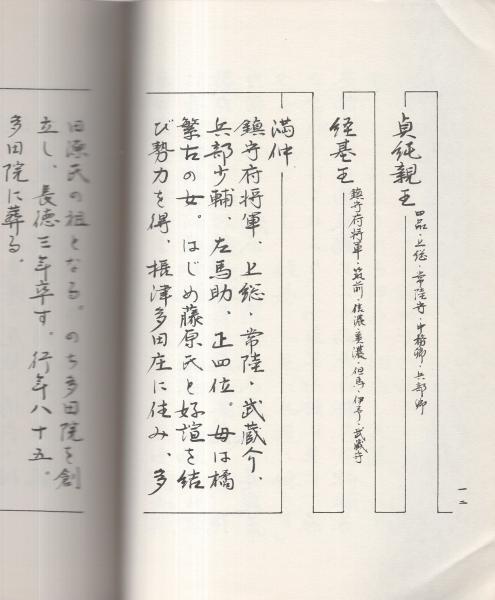 貞純親王 四品・上総・常陸守・中務卿・兵部卿
経基王 鎮守府将軍・筑前・信濃・美濃・但馬・伊予・武蔵守
満仲
鎮守府将軍、上総・常陸・武蔵介、
兵部少輔、左馬助、正四位。母は橘
繁古の女。はじめ藤原氏と好誼を結
び勢力を得、摂津多田庄に住み、多
田源氏の祖となる。のち多田院を創
立し、長徳三年卒す。行年八十五。
多田院に葬る。
一二